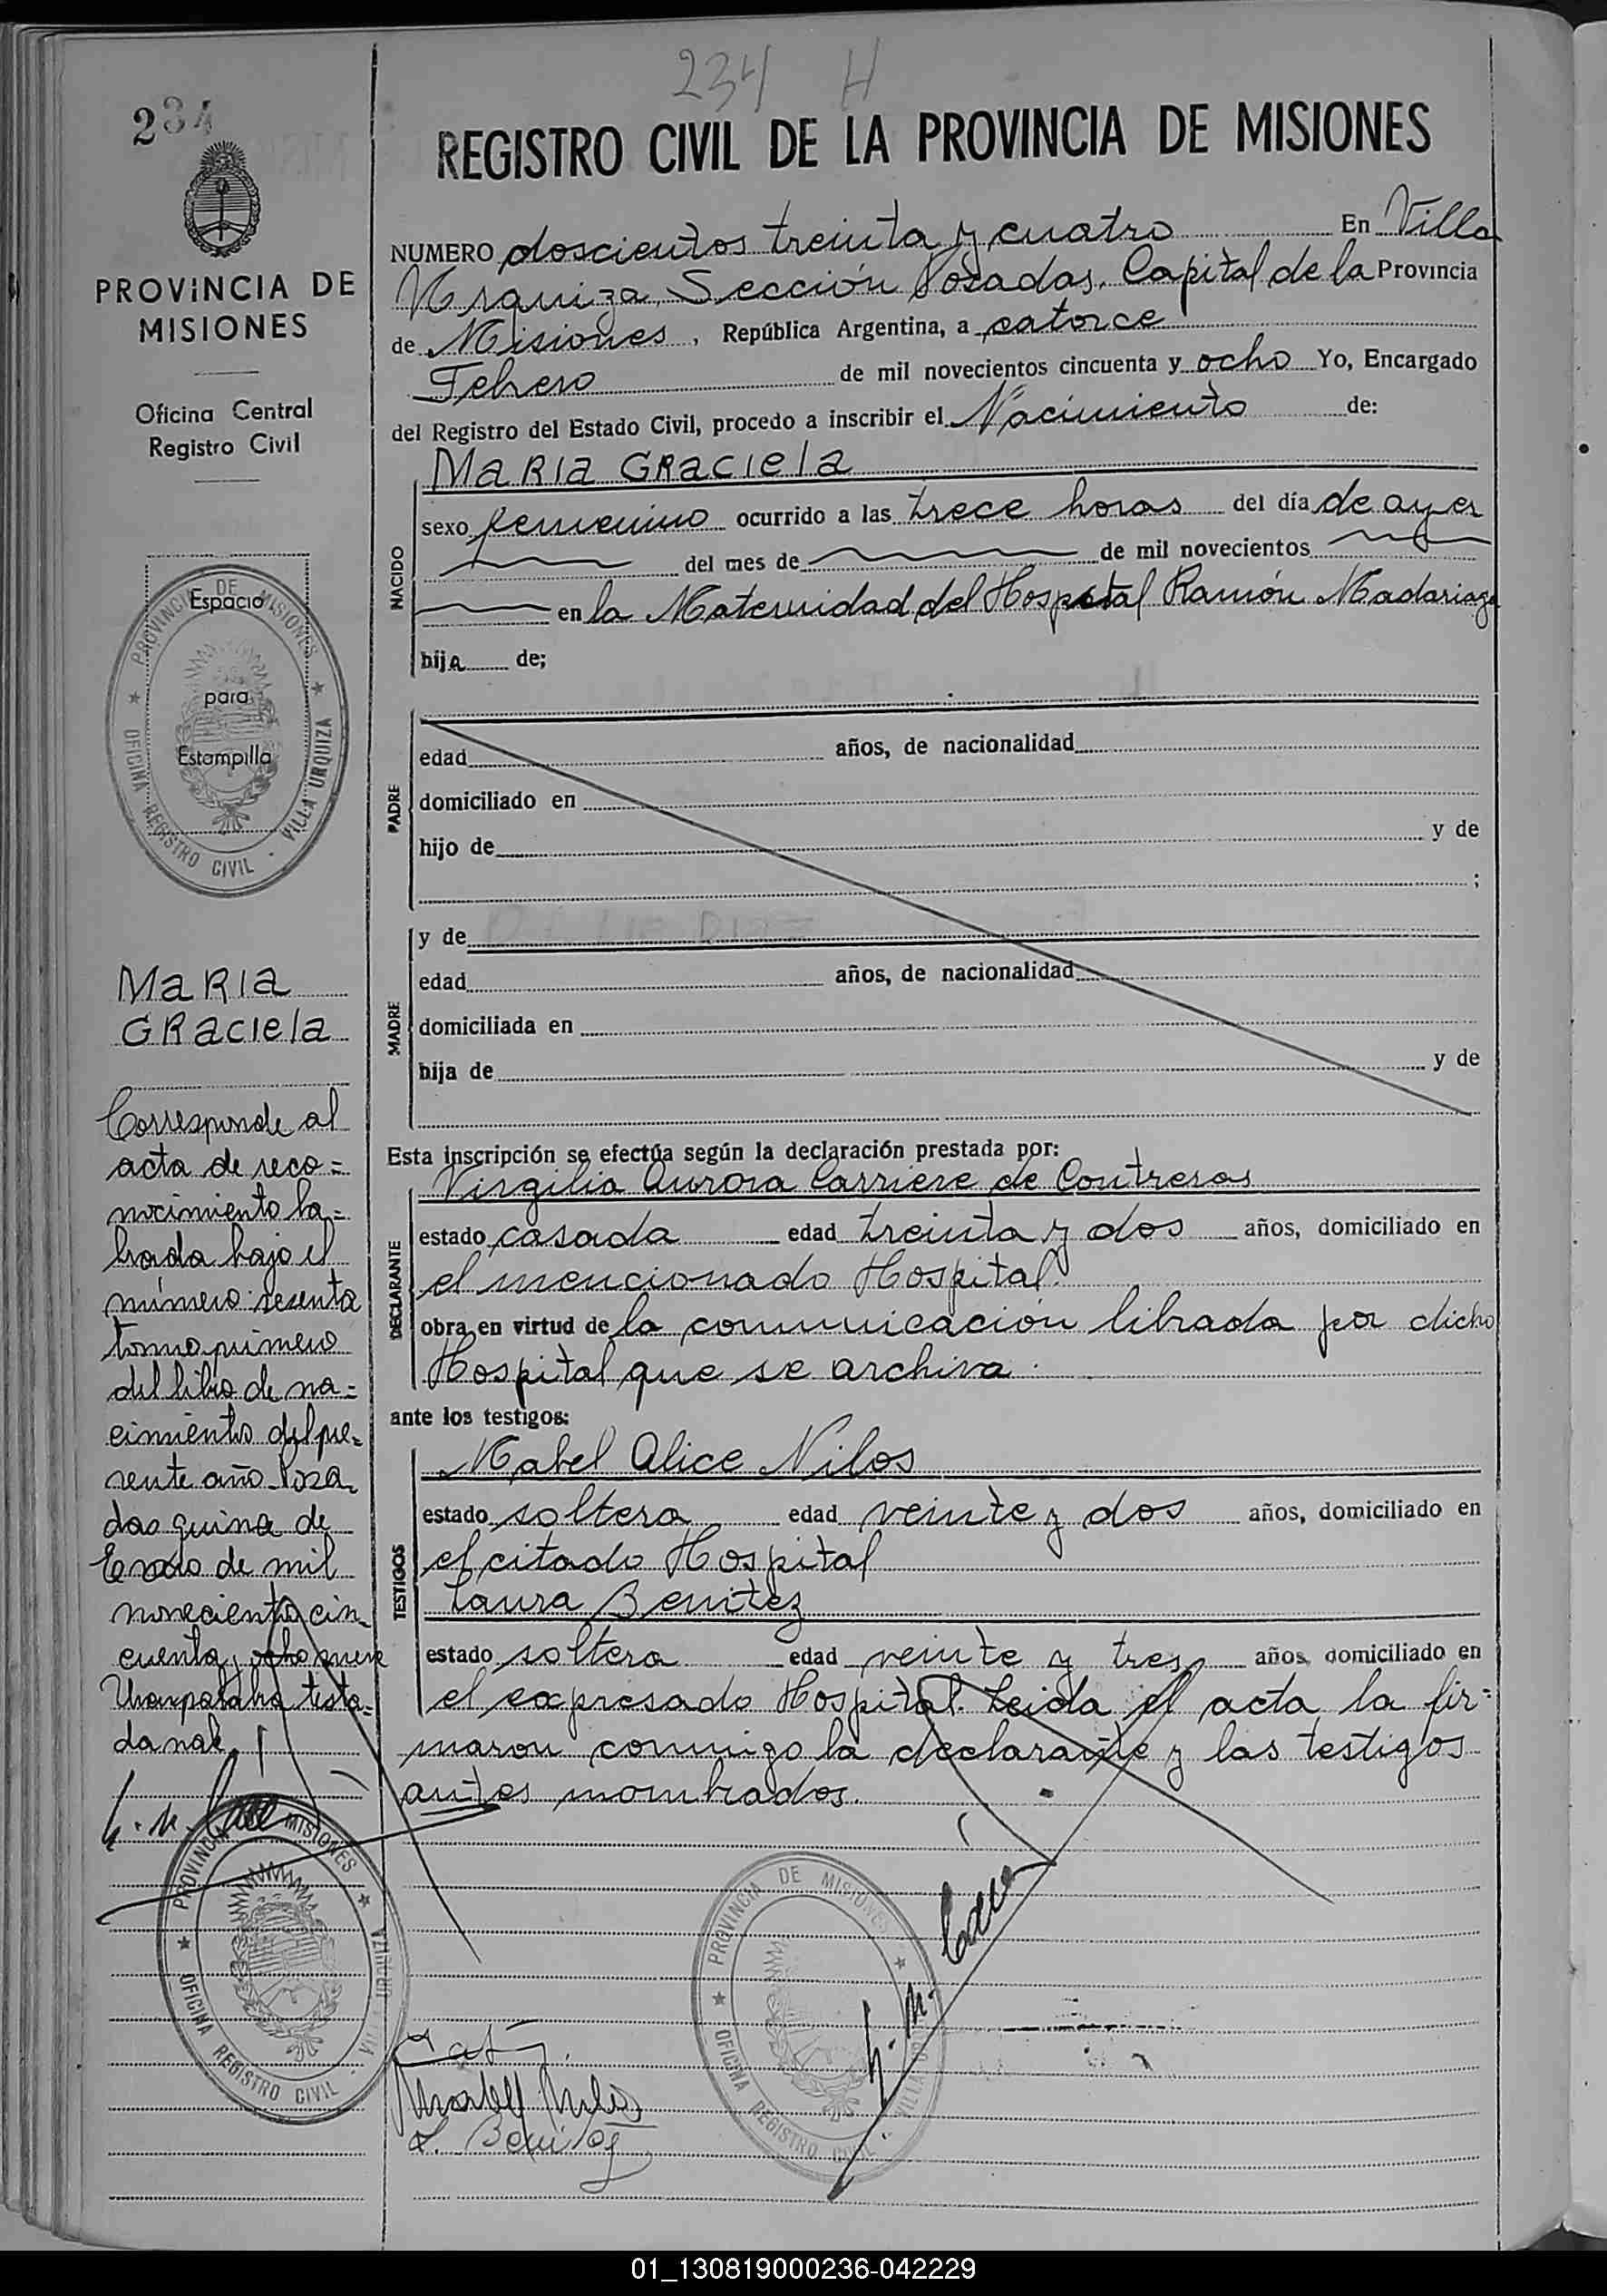 234 H
234
PROVINCIA DE
MISIONES
Oficina Central
Registro Civil
Espacio
para
Estampilla
PROVINCIA DE MISIONES
OFICINA REGISTRO CIVIL - VILLA URQUIZA
MaRIa
GRacIela
Corresponde al
acta de reco=
nocimiento la=
brada bajo el
número: sesenta
tomo primero
del libro de na=
cimientos del pre=
sente año. Posa
das quince de
de mil
novecientos cin
cuenta y ocho
testa=
da
REGISTRO CIVIL DE LA PROVINCIA DE MISIONES
NUMERO doscientos treinta y cuatro En Villa
Urquiza, Sección Posadas, Capital de la Provincia
de Misiones, República Argentina, a catorce
Febrero de mil novecientos cincuenta y ocho Yo, Encargado
del Registro del Estado Civil, procedo a inscribir el Nacimiento de:
MaRIa GRacIela
NACIDO
sexo femenino ocurrido a las trece horas del día de ayer
del mes de de mil novecientos
en la Maternidad del Hospital Ramón Madariaga
hija de;
PADRE
edad años, de nacionalidad
domiciliado en
hijo de y de
;
MADRE
y de
edad años, de nacionalidad
domiciliada en
hija de y de
Esta inscripción se efectúa según la declaración prestada por:
DECLARANTE
Virgilia Aurora Carriere de Contreras
estado casada edad treinta y dos años, domiciliado en
el mencionado Hospital.
obra en virtud de la comunicación librada por dicho
Hospital que se archiva.
ante los testigos:
TESTIGOS
Mabel Alice Nilos
estado soltera edad veinte y dos años, domiciliado en
el citado Hospital
Laura Benitez
estado soltera edad veinte y tres años, domiciliado en
el expresado Hospital. Leida el acta la fir=
maron conmigo la declarante y las testigos
antes nombrados.
PROVINCIA DE MISIONES
OFICINA REGISTRO CIVIL - VILLA URQUIZA
PROVINCIA DE MISIONES
OFICINA REGISTRO CIVIL - VILLA URQUIZA
L. Benitez
01_130819000236-042229